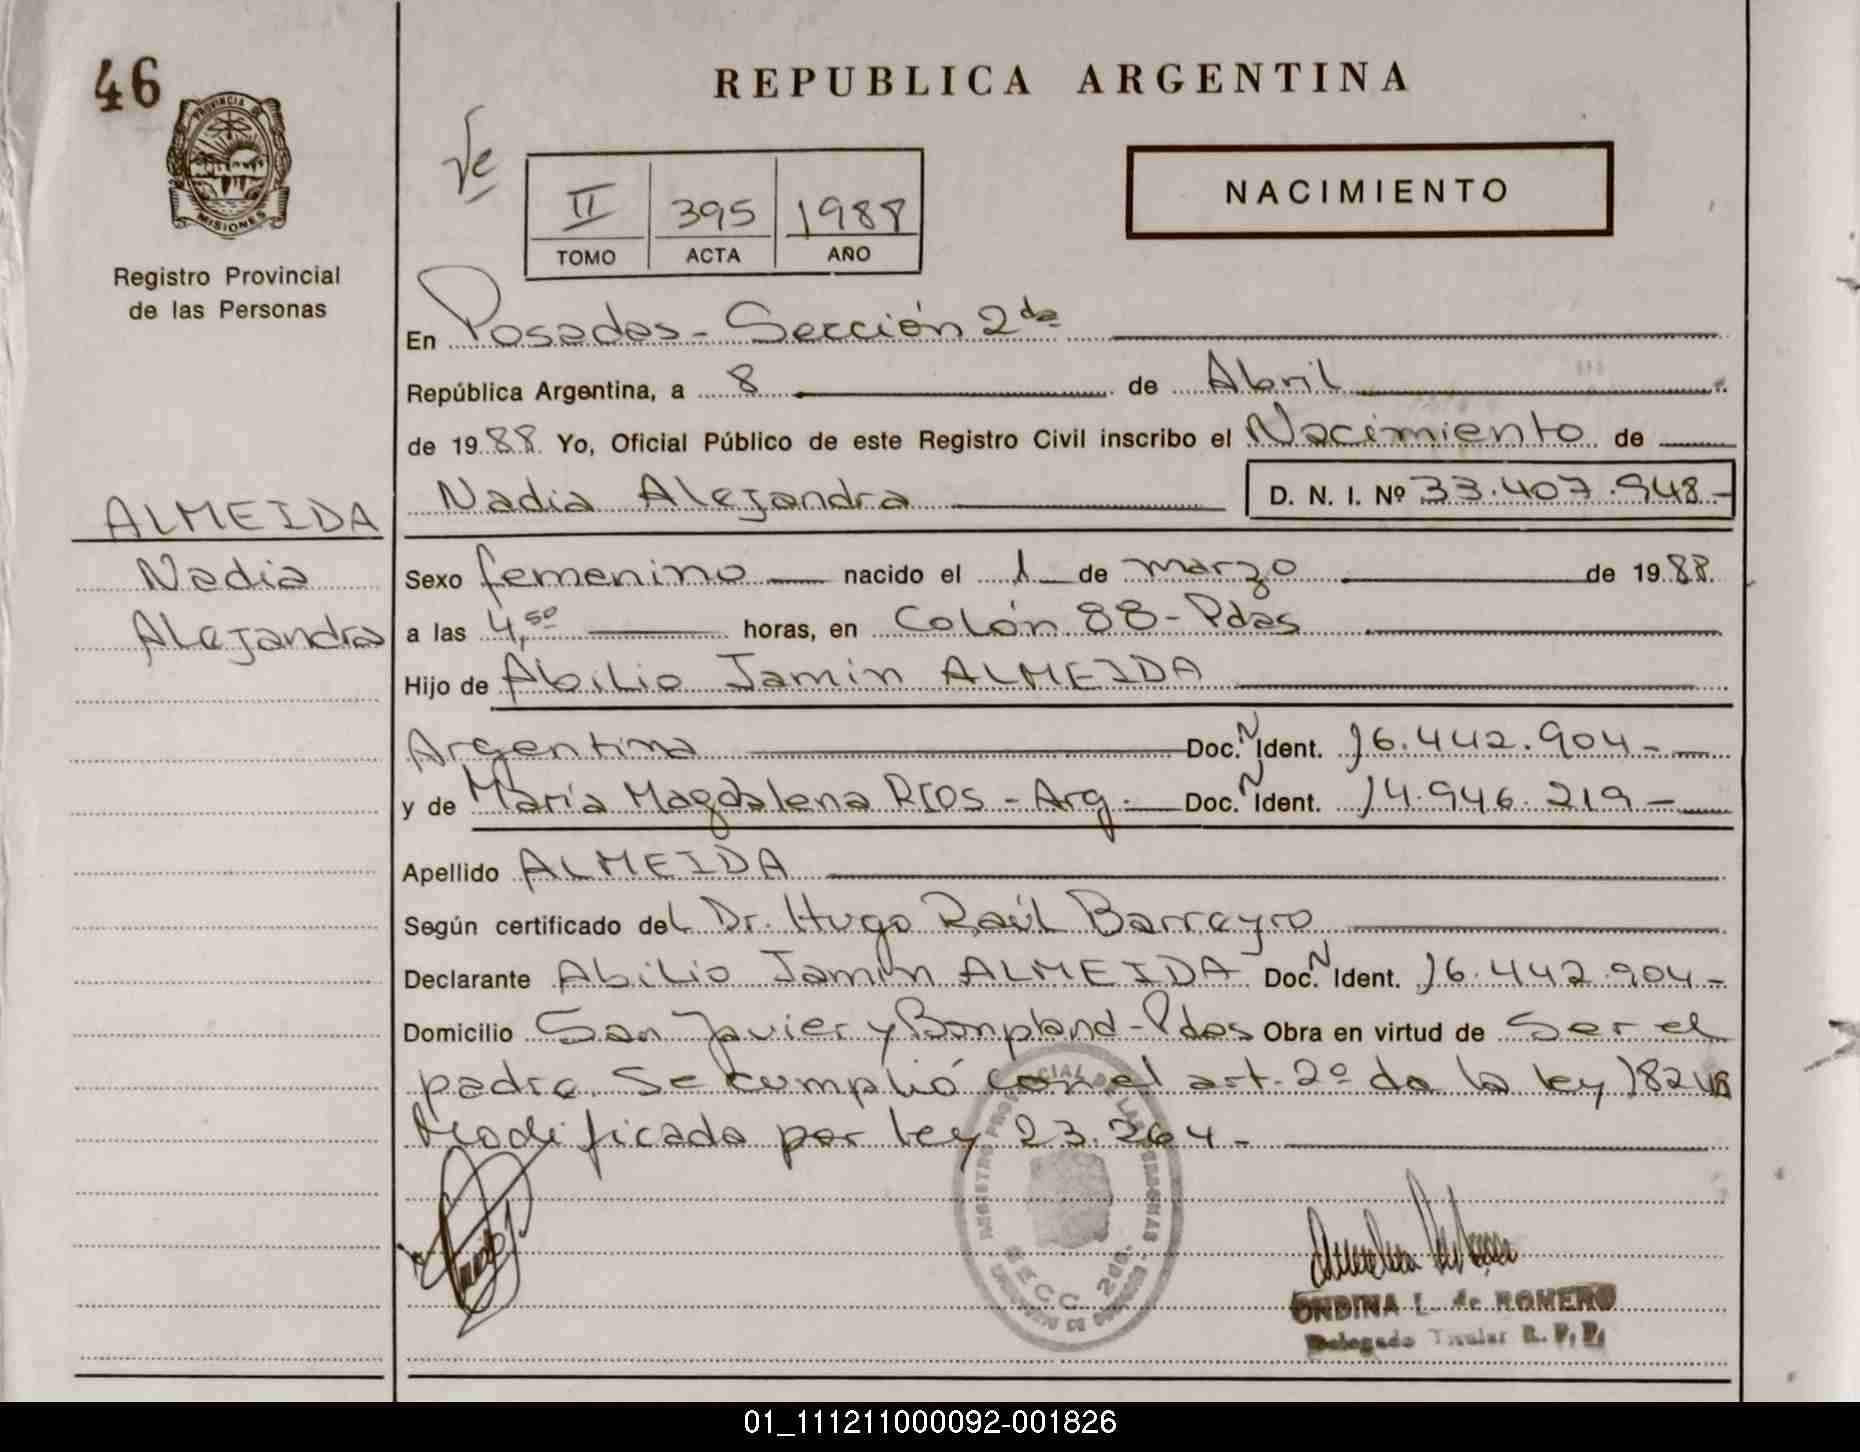 46
PROVINCIA D
MISIONES
Registro Provincial
de las Personas
REPUBLICA ARGENTINA
Ve
NACIMIENTO
II 395 1988
TOMO ACTA AÑO
En Posadas - Sección 2da
República Argentina, a 8 de Abril
de 1988 Yo, Oficial Público de este Registro Civil inscribo el Nacimiento de
Nadia Alejandra D. N. I. Nº 33.407.948-
ALMEIDA
Nadia
Alejandra
Sexo femenino nacido el 1 de marzo de 1988.
a las 4,50 horas, en Colón 88 - Pdas
Hijo de Abilio Jamin ALMEIDA
Argentina Doc. N Ident. 16.442.904-
y de María Magdalena RIOS - Arg. Doc. N Ident. 14.946.219-
Apellido ALMEIDA
Según certificado del Dr. Hugo Raúl Barreyro
Declarante Abilio Jamin ALMEIDA Doc. N Ident. 16.442.904-
Domicilio San Javier y Bonpland - Pdas Obra en virtud de Ser el
padre. Se cumplió con el art. 2º de la ley 18248
Modificada por ley 23.264-
REGISTRO PROVINCIAL DE LAS PERSONAS
SECC. 2da.
ONDINA L. de ROMERO
Delegado Titular R. P. P.
01_111211000092-001826